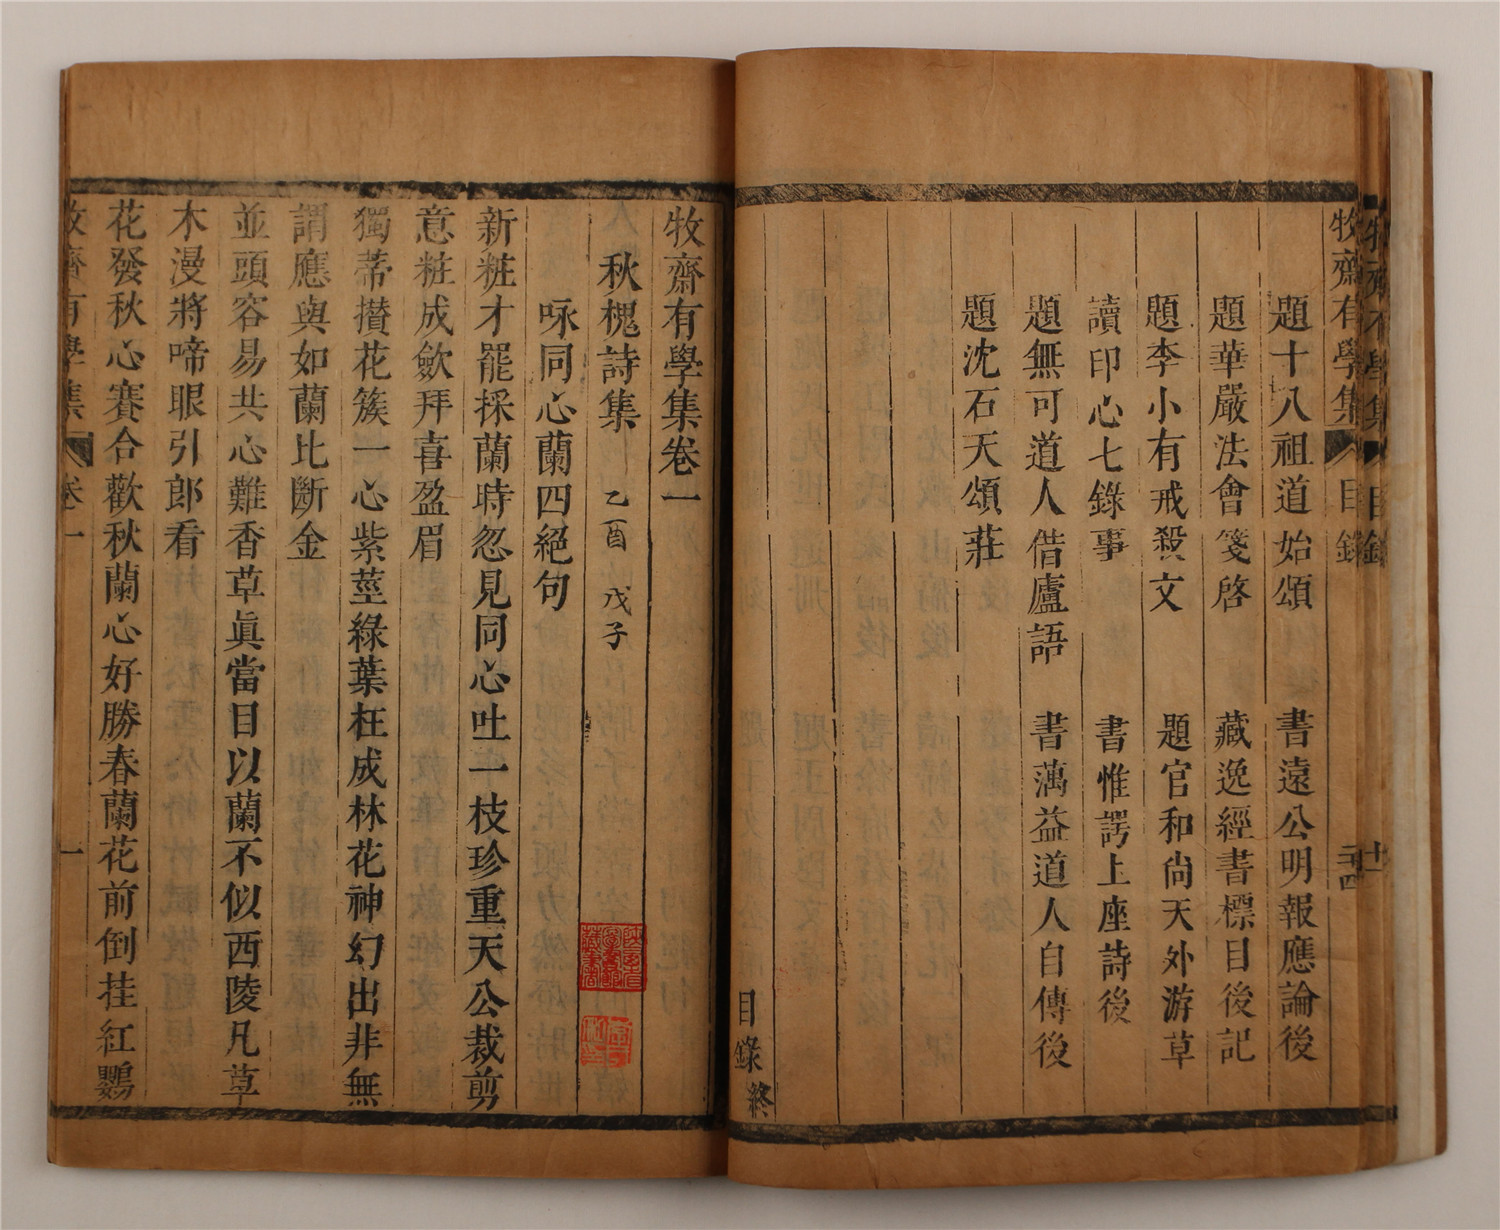 牧齋有學集 目錄
題十八祖道始頌 書遠公明報應論後
題華嚴法會箋啓 藏逸經書標目後記
題李小有戒殺文 題官和尚天外游草
讀印心七錄事 書惟諤上座詩後
題無可道人借廬語 書蕅益道人自傳後
題沈石天頌莊
目錄終
牧齋有學集卷一
秋槐詩集 乙酉 戊子
咏同心蘭四絕句
新粧才罷採蘭時忽見同心吐一枝珍重天公裁剪
意粧成歛拜喜盈眉
獨蒂攢花簇一心紫莖綠葉枉成林花神幻出非無
謂應與如蘭比斷金
並頭容易共心難香草眞當目以蘭不似西陵凡草
木漫將啼眼引郎看
花發秋心賽合歡秋蘭心好勝春蘭花前倒挂紅鸚
牧齋有學集 卷一 一